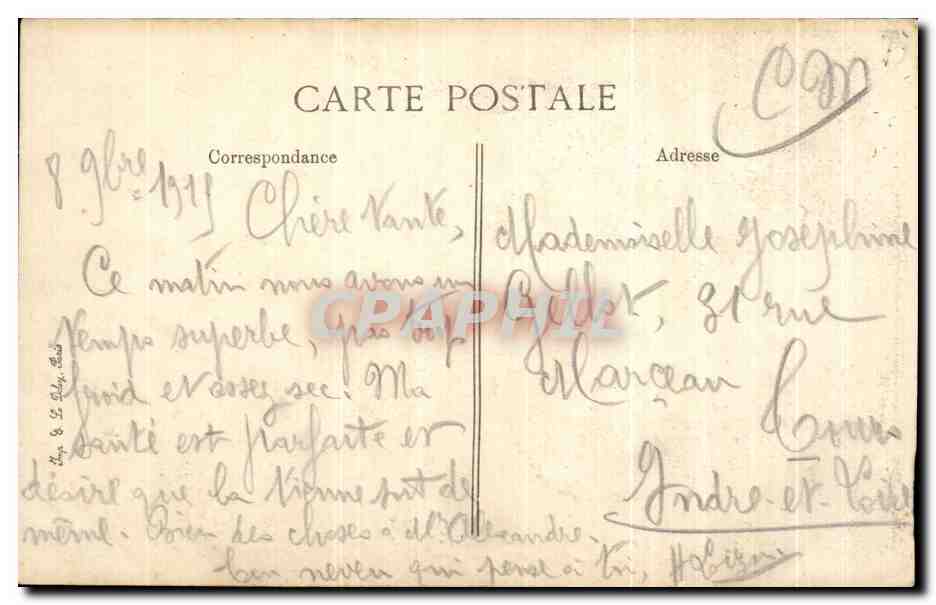 CM
CARTE POSTALE
Correspondance
Adresse
8 9bre 1915
Chère Tante,
Ce matin nous avons un
temps superbe, pas trop
froid et assez sec. Ma
santé est parfaite et
désire que la tienne soit de
même. Bien des choses à Mr Alexandre.
Ton neveu qui pense à toi,
Mademoiselle Joséphine
31 rue
Marceau
Tours
Indre-et-Loire
Imp. E. Le Deley, Paris
CPAPHIL